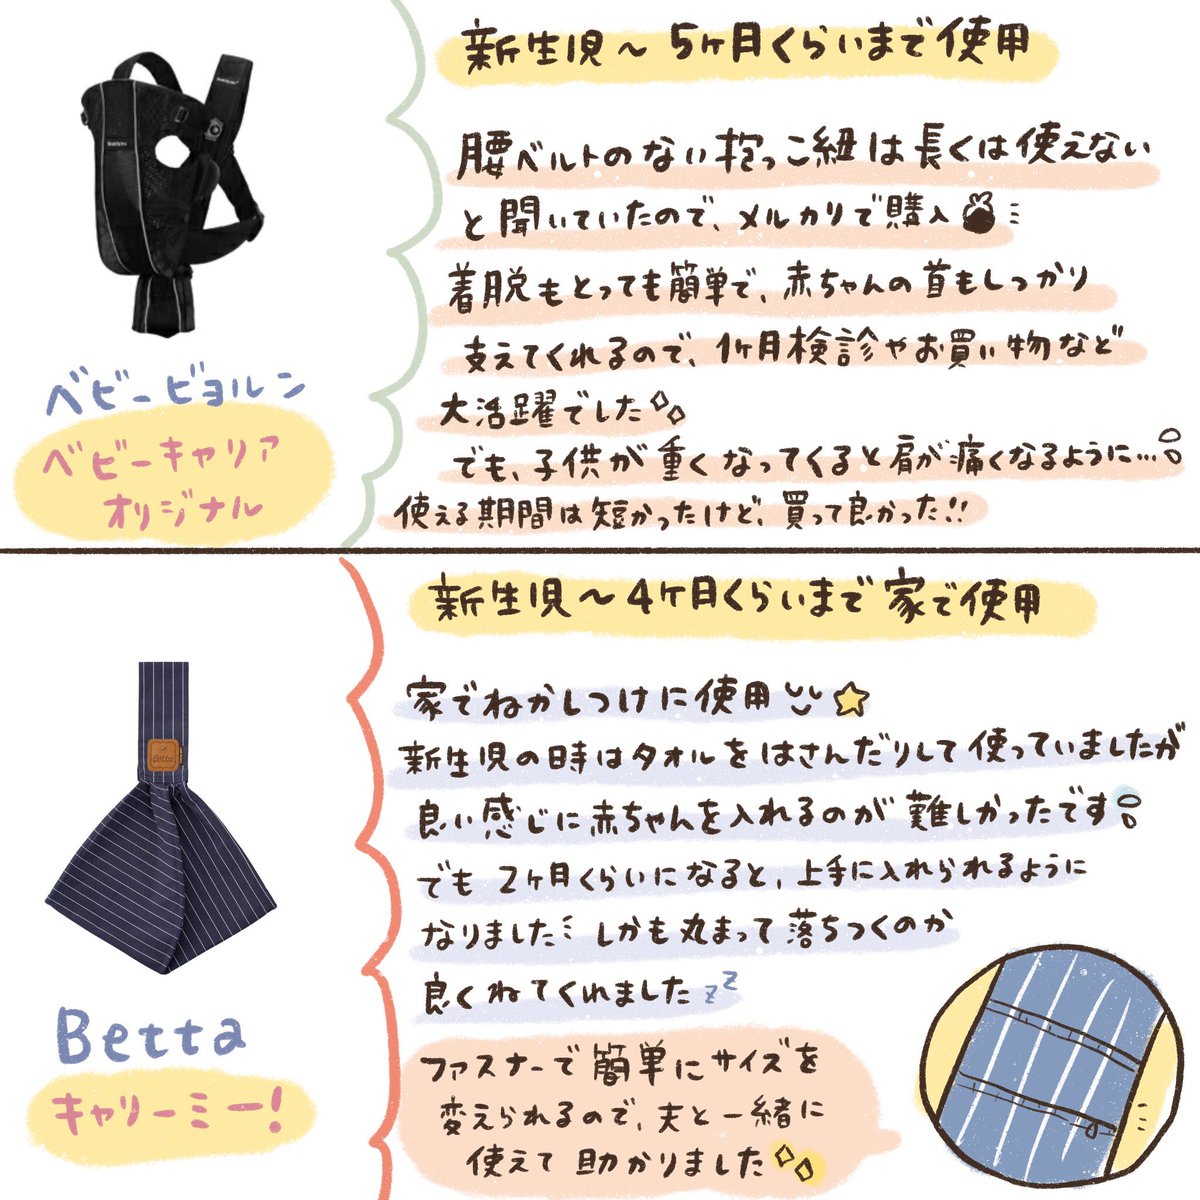 新生児〜5ヶ月くらいまで使用
腰ベルトのない抱っこ紐は長くは使えない
と聞いていたので、メルカリで購入
着脱もとっても簡単で、赤ちゃんの首もしっかり
支えてくれるので、1ヶ月検診やお買い物など
大活躍でした
でも、子供が重くなってくると肩が痛くなるように…
使える期間は短かったけど、買って良かった!!
ベビービョルン
ベビーキャリア
オリジナル
新生児〜4ヶ月くらいまで家で使用
家でねかしつけに使用
新生児の時はタオルをはさんだりして使っていましたが
良い感じに赤ちゃんを入れるのが難しかったです
でも2ヶ月くらいになると、上手に入れられるように
なりました しかも丸まって落ちつくのか
良くねてくれました zz
ファスナーで簡単にサイズを
変えられるので、夫と一緒に
使えて助かりました
Betta
Betta
キャリーミー!